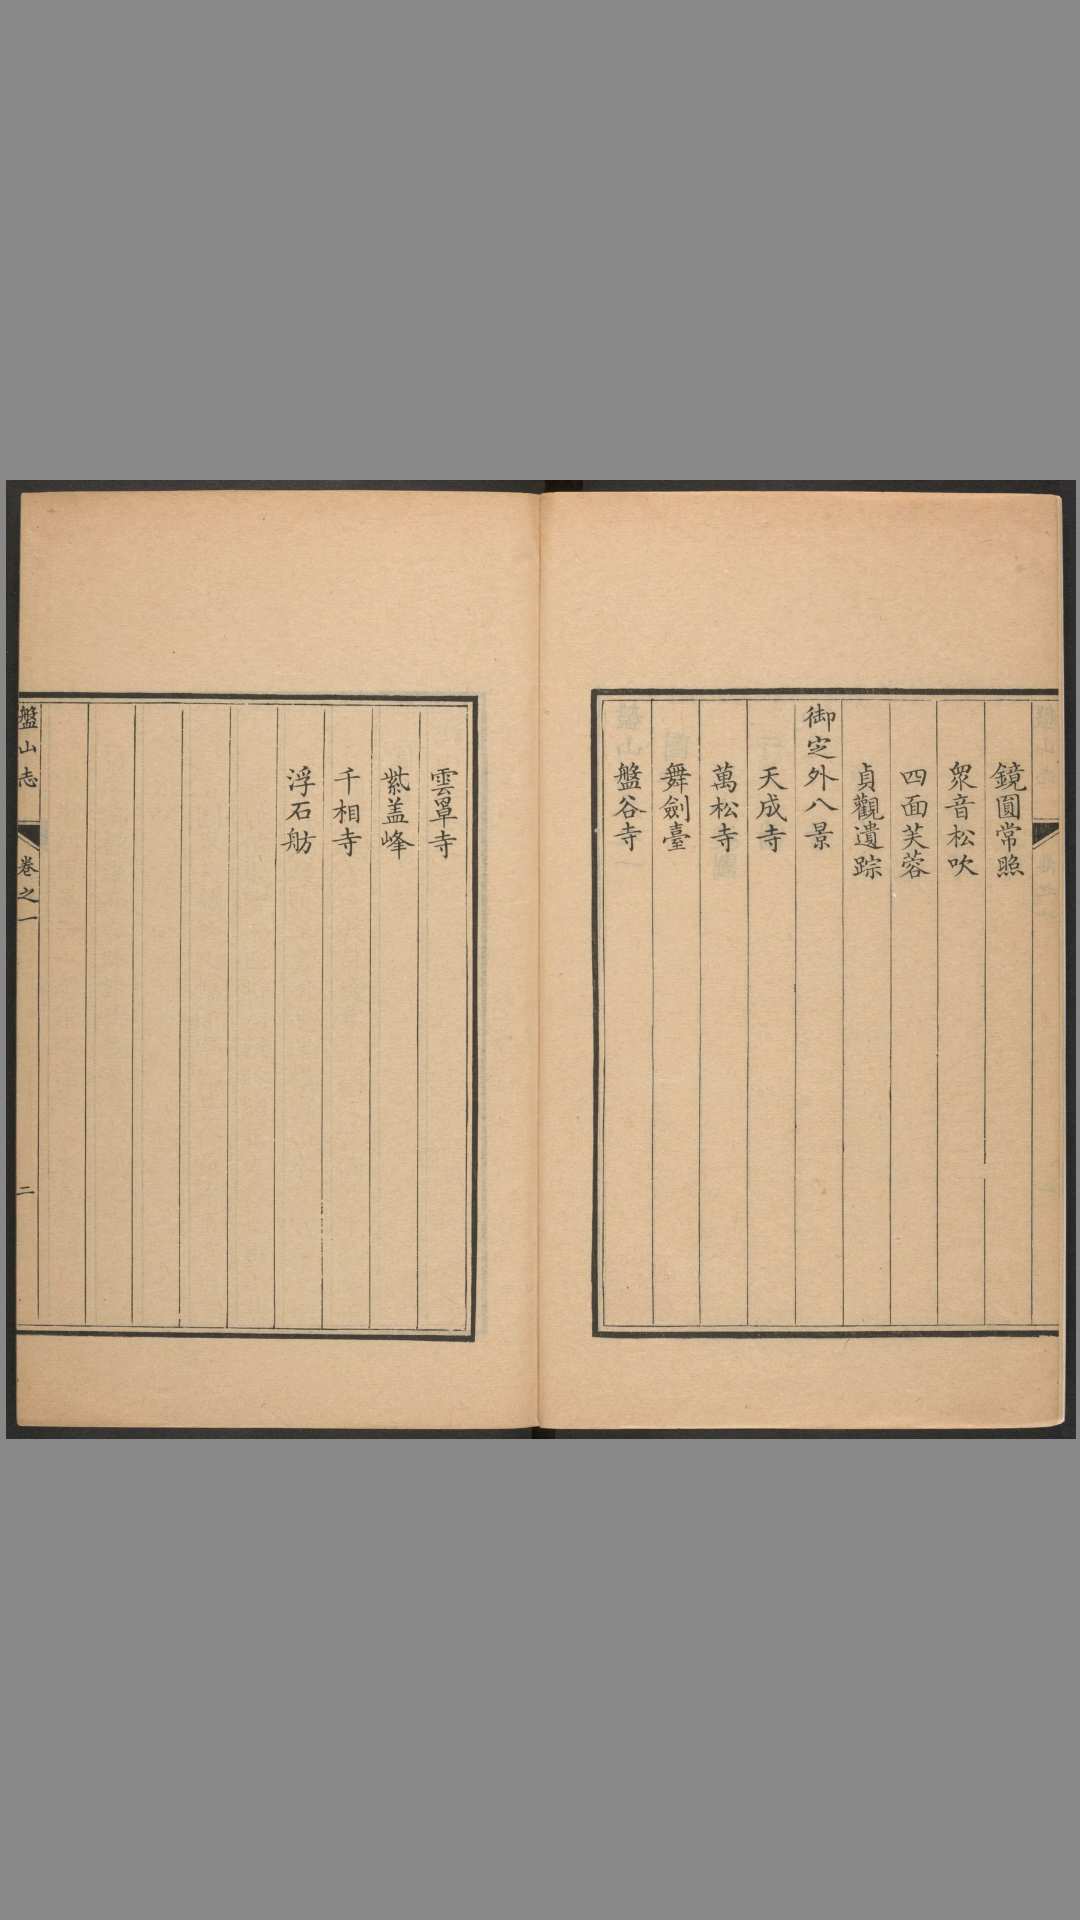 鏡圓常照
衆音松吹
四面芙蓉
貞觀遺踪
御定外八景
天成寺
萬松寺
舞劍臺
盤谷寺
雲罩寺
紫盖峰
千相寺
浮石舫
盤山志 卷之一 二